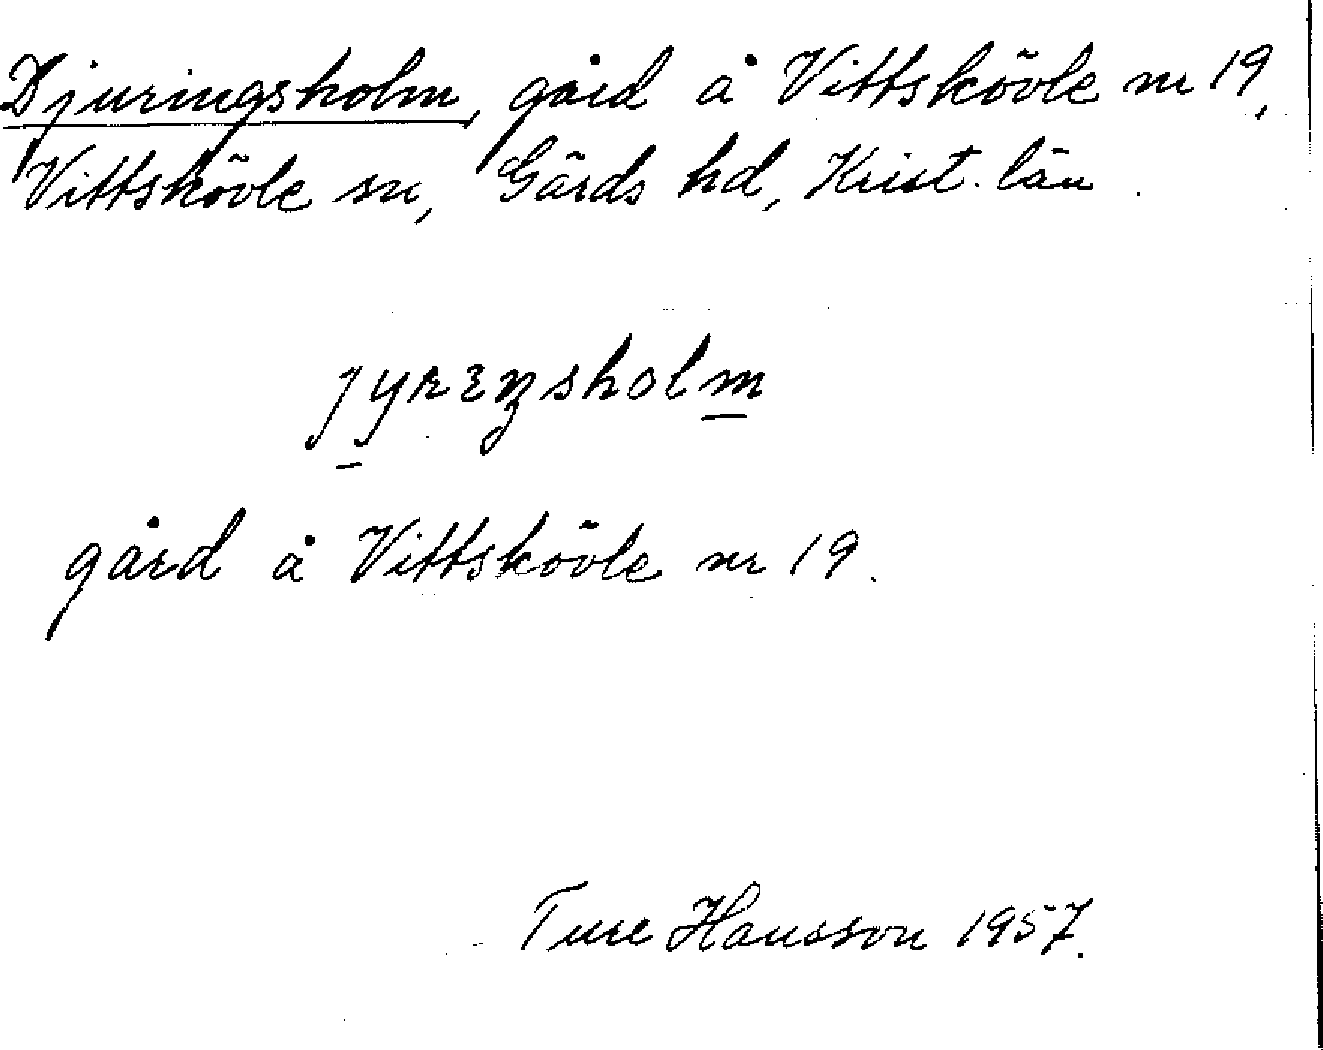 Djuringsholm, gård å Vittskövle nr 19,
Vittskövle sn, Gärds hd, Krist. län.
jyʀɛŋsholm
gård å Vittskövle nr 19.
Ture Hansson 1957.